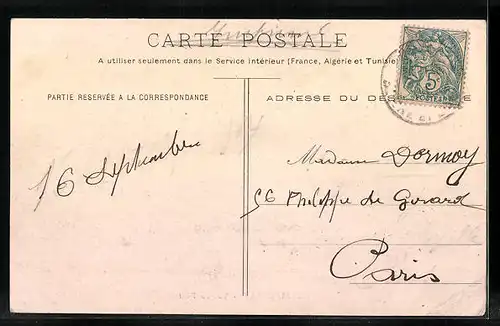 CARTE POSTALE
A utiliser seulement dans le Service intérieur (France, Algérie et Tunisie)
PARTIE RÉSERVÉE A LA CORRESPONDANCE
ADRESSE DU DES
E
5
POSTES
16 Septembre
Madame Dormoy
56 Philippe de Girard
Paris